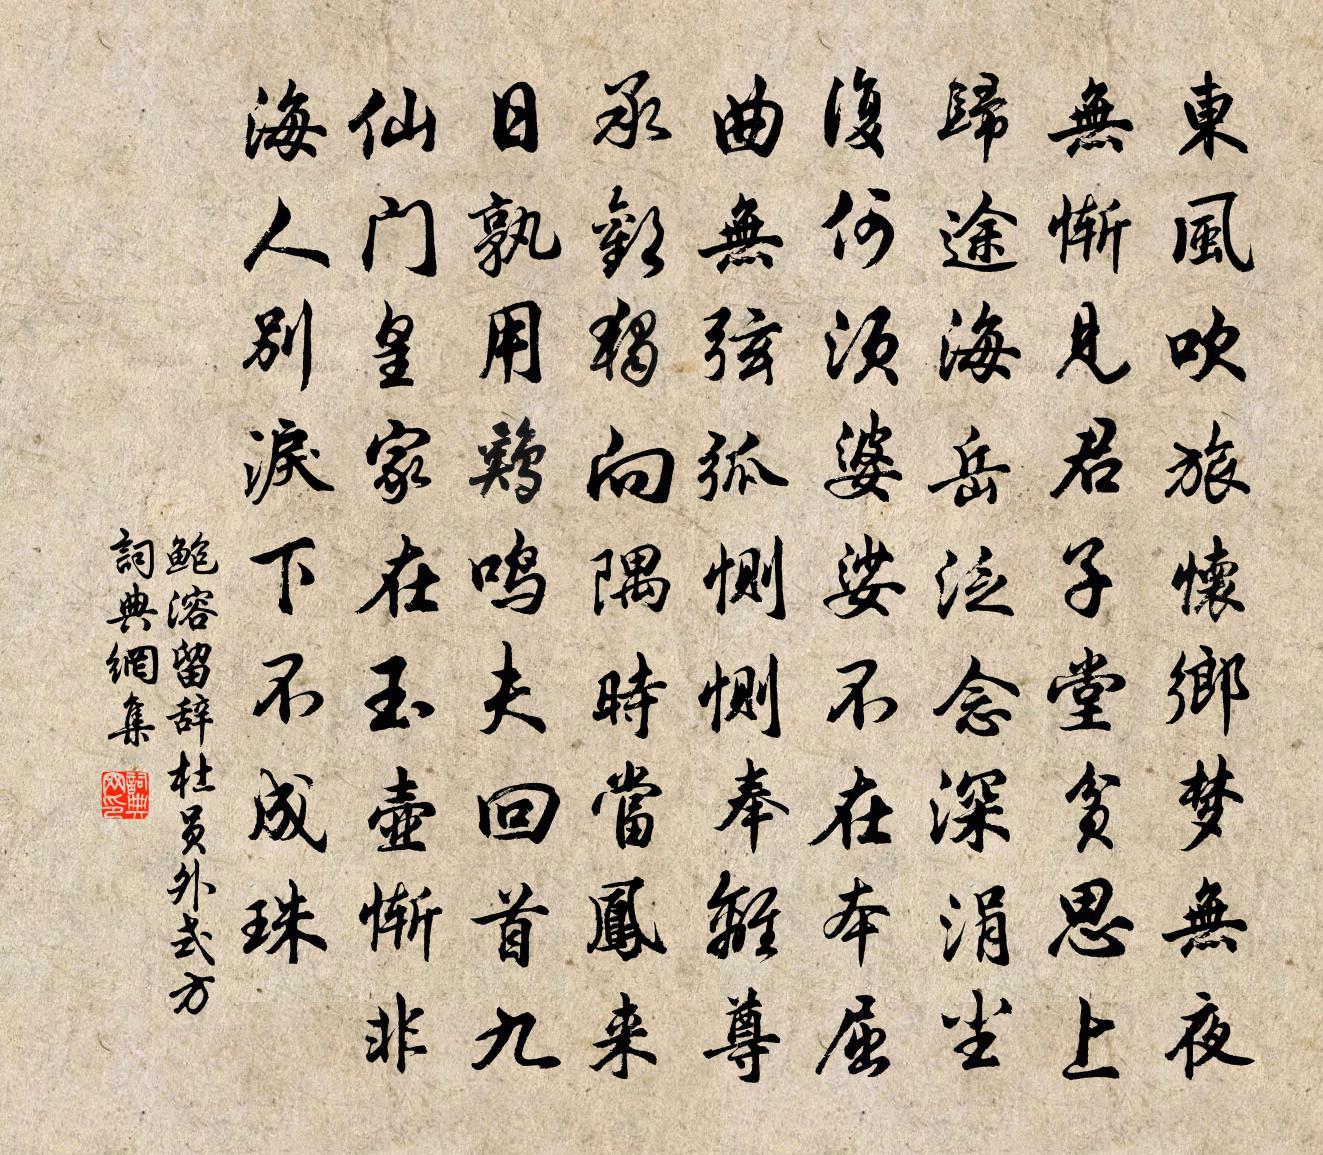 東風吹旅懷鄉梦無夜
無慚見君子堂貧思上
歸途海岳泛念深涓尘
復何須婆娑不在本屈
曲無弦弧惻惻奉離尊
承歡獨向隅時當鳳来
日孰用鷄鳴夫回首九
仙门皇家在玉壺慚非
海人别淚下不成珠
鮑溶留辞杜员外式方
詞典網集
詞典网印